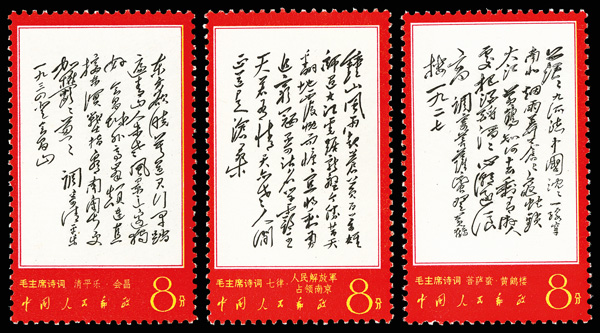 东方欲晓莫道君行早踏
遍青山人未老风景这边独
好会昌城外高峰颠连直
接东溟战士指看南粤更
加郁郁葱葱 调寄清平乐
一九三四登会昌山
毛主席诗词 清平乐·会昌
中国人民邮政 8分
钟山风雨起苍黄百万雄
师过大江虎踞龙盘今胜昔天
翻地覆慨而慷宜将剩勇
追穷寇不可沽名学霸王
天若有情天亦老人间
正道是沧桑
毛主席诗词 七律·人民解放軍
占领南京
中国人民邮政 8分
茫茫九派流中国沉沉一线穿
南北烟雨莽苍苍龟蛇锁
大江黄鹤知何去剩有游人
处把酒酹滔滔心潮逐浪
高 调寄菩萨蛮登黄鹤
楼 一九二七
毛主席诗词 菩萨蛮·黄鹤楼
中国人民邮政 8分